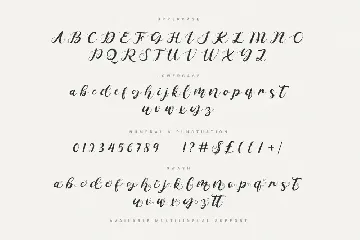 UPPERCASE
A B C D E F G H I J K L M N O
P Q R S T U V W X Y Z
LOWERCASE
a b c d e f g h i j k l m n o p q r s t
u v w x y z
NUMERAL & PUNCTUATION
0 1 2 3 4 5 6 7 8 9 ! ? # $ £ ( [ { + /
a b c d e f g h i j k l m n o p q r s t
u v w x y z
MULTILINGUAL SUPPORT